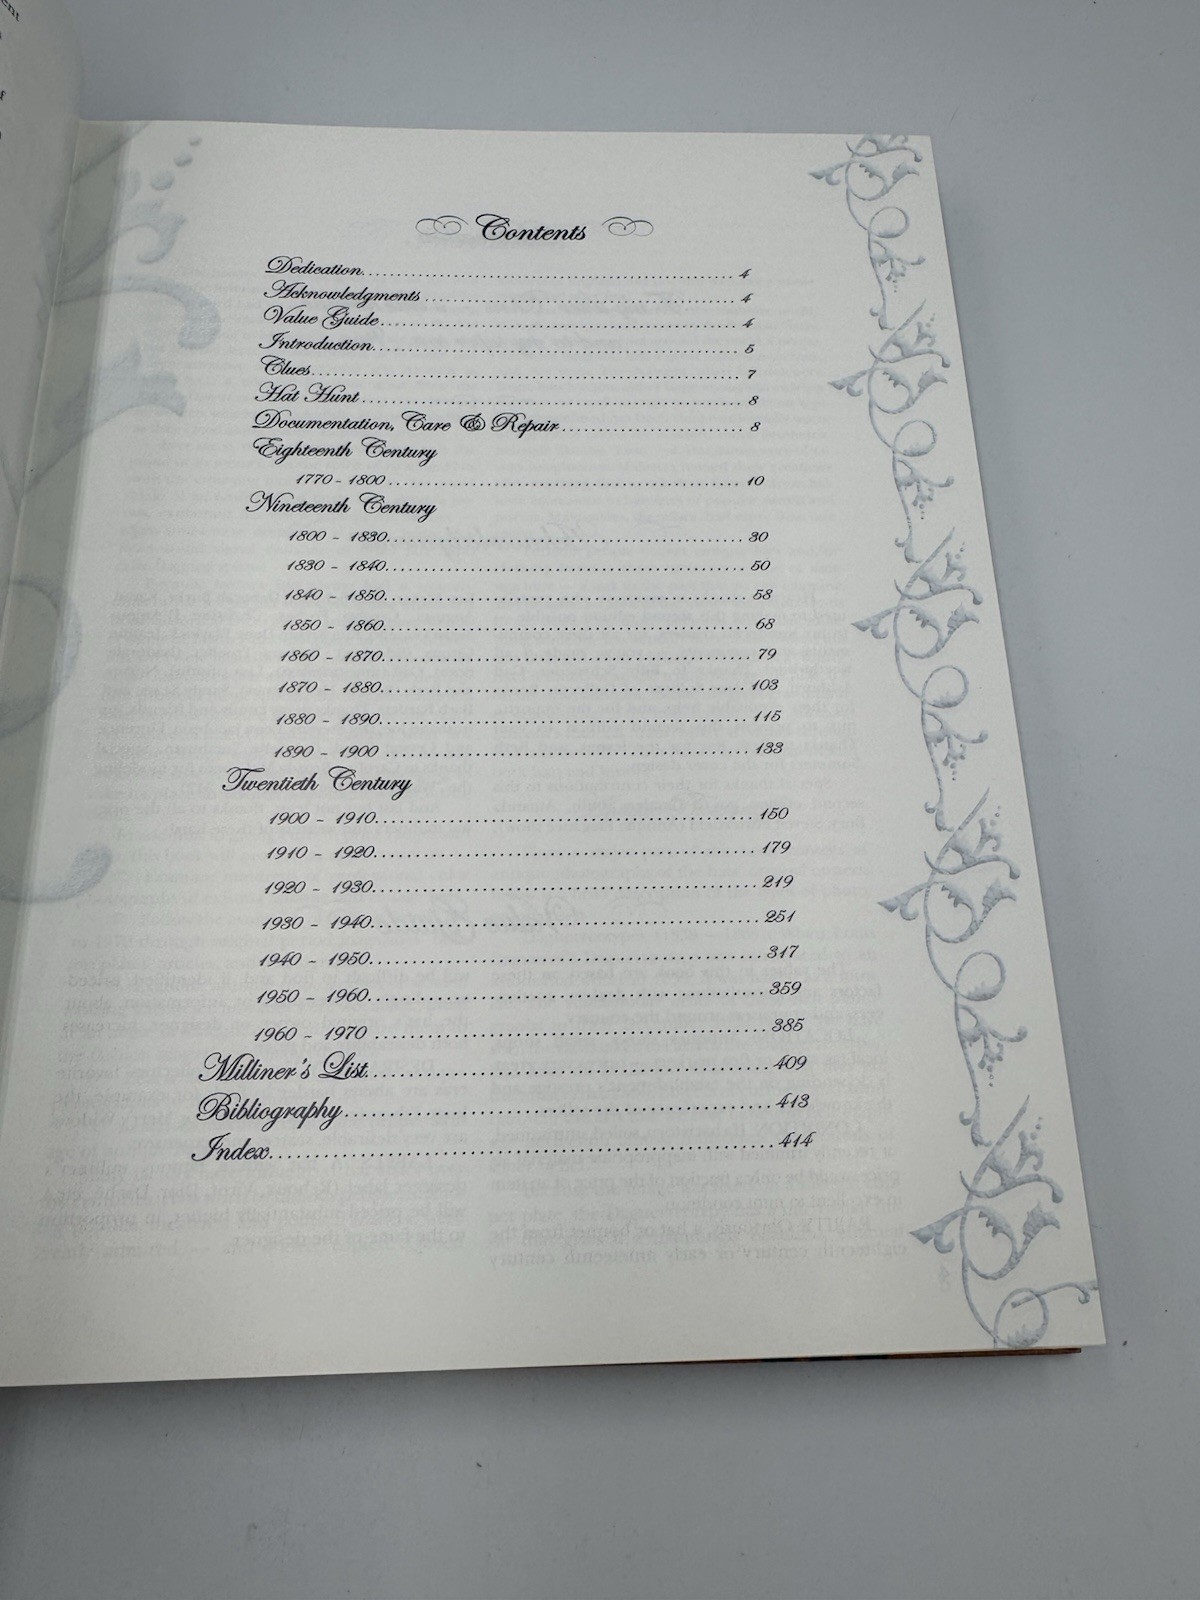 Contents
Dedication.......... 4
Acknowledgments .......... 4
Value Guide.......... 4
Introduction.......... 5
Clues.......... 7
Hat Hunt .......... 8
Documentation, Care & Repair.......... 8
Eighteenth Century
1770 - 1800.......... 10
Nineteenth Century
1800 - 1830.......... 30
1830 - 1840.......... 50
1840 - 1850.......... 58
1850 - 1860.......... 68
1860 - 1870.......... 79
1870 - 1880.......... 103
1880 - 1890.......... 115
1890 - 1900 .......... 133
Twentieth Century
1900 - 1910.......... 150
1910 - 1920.......... 179
1920 - 1930.......... 219
1930 - 1940.......... 251
1940 - 1950.......... 317
1950 - 1960.......... 359
1960 - 1970 .......... 385
Milliner's List.......... 409
Bibliography.......... 413
Index.......... 414